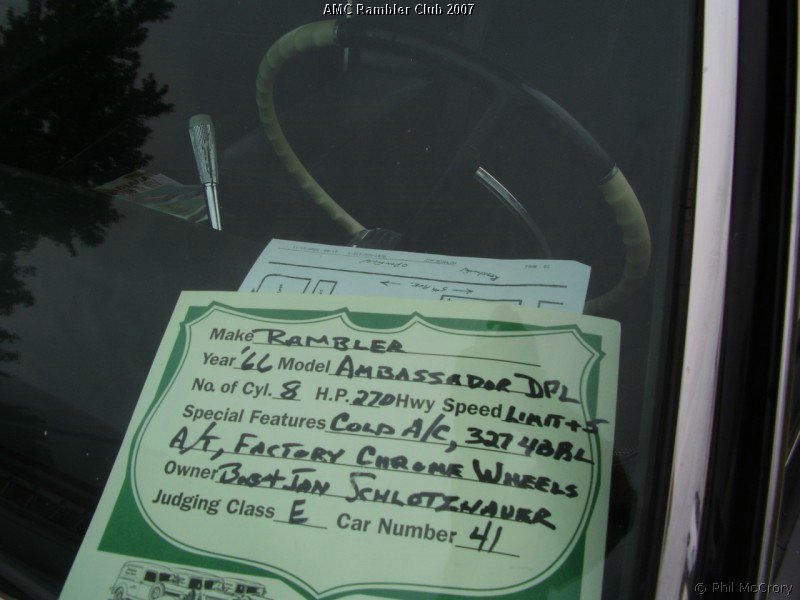 AMC Rambler Club 2007
Make RAMBLER
Year '66 Model AMBASSADOR DPL
No. of Cyl. 8 H.P. 270 Hwy Speed LIMIT+5
Special Features COLD A/C, 327 4BBL
A/T, FACTORY CHROME WHEELS
Owner BOB + JAN SCHLOTZHAUER
Judging Class E Car Number 41
© Phil McCrory